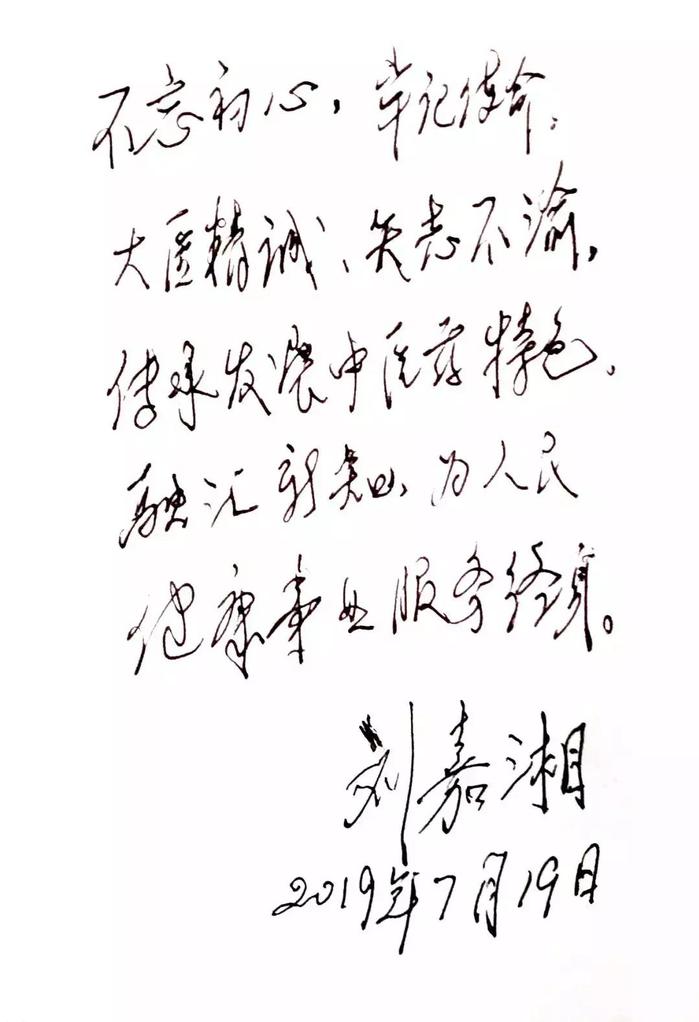 不忘初心，牢记使命。
大医精诚、矢志不渝，
传承发展中医药特色，
融汇新知，为人民
健康事业服务终身。
刘嘉湘
2019年7月19日